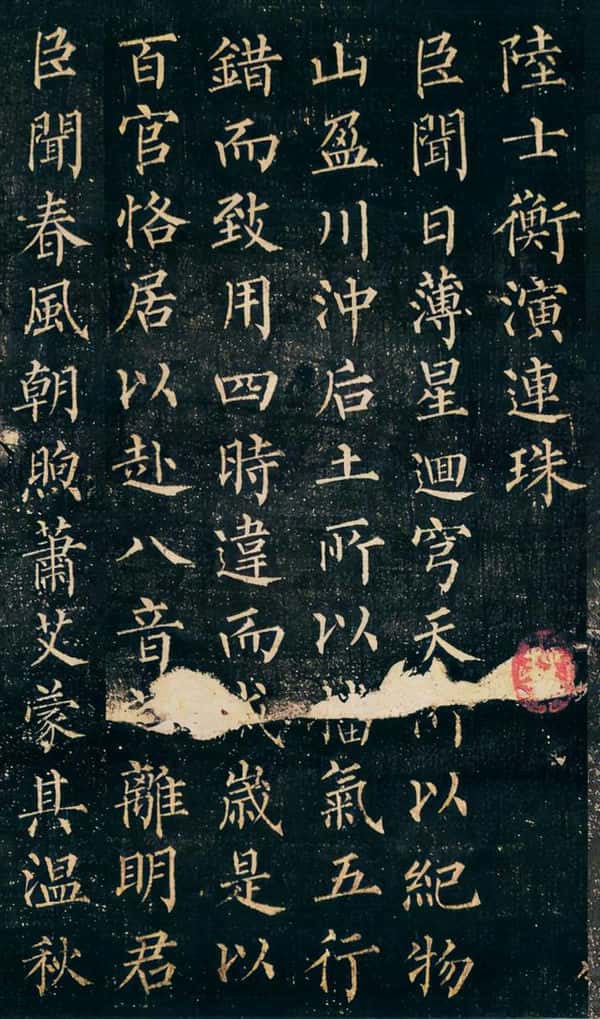 陸士衡演連珠
臣聞日薄星迴穹天所以紀物
山盈川沖后土所以播氣五行
錯而致用四時違而成歲是以
百官恪居以赴八音離明君
臣聞春風朝煦蕭艾蒙其温秋